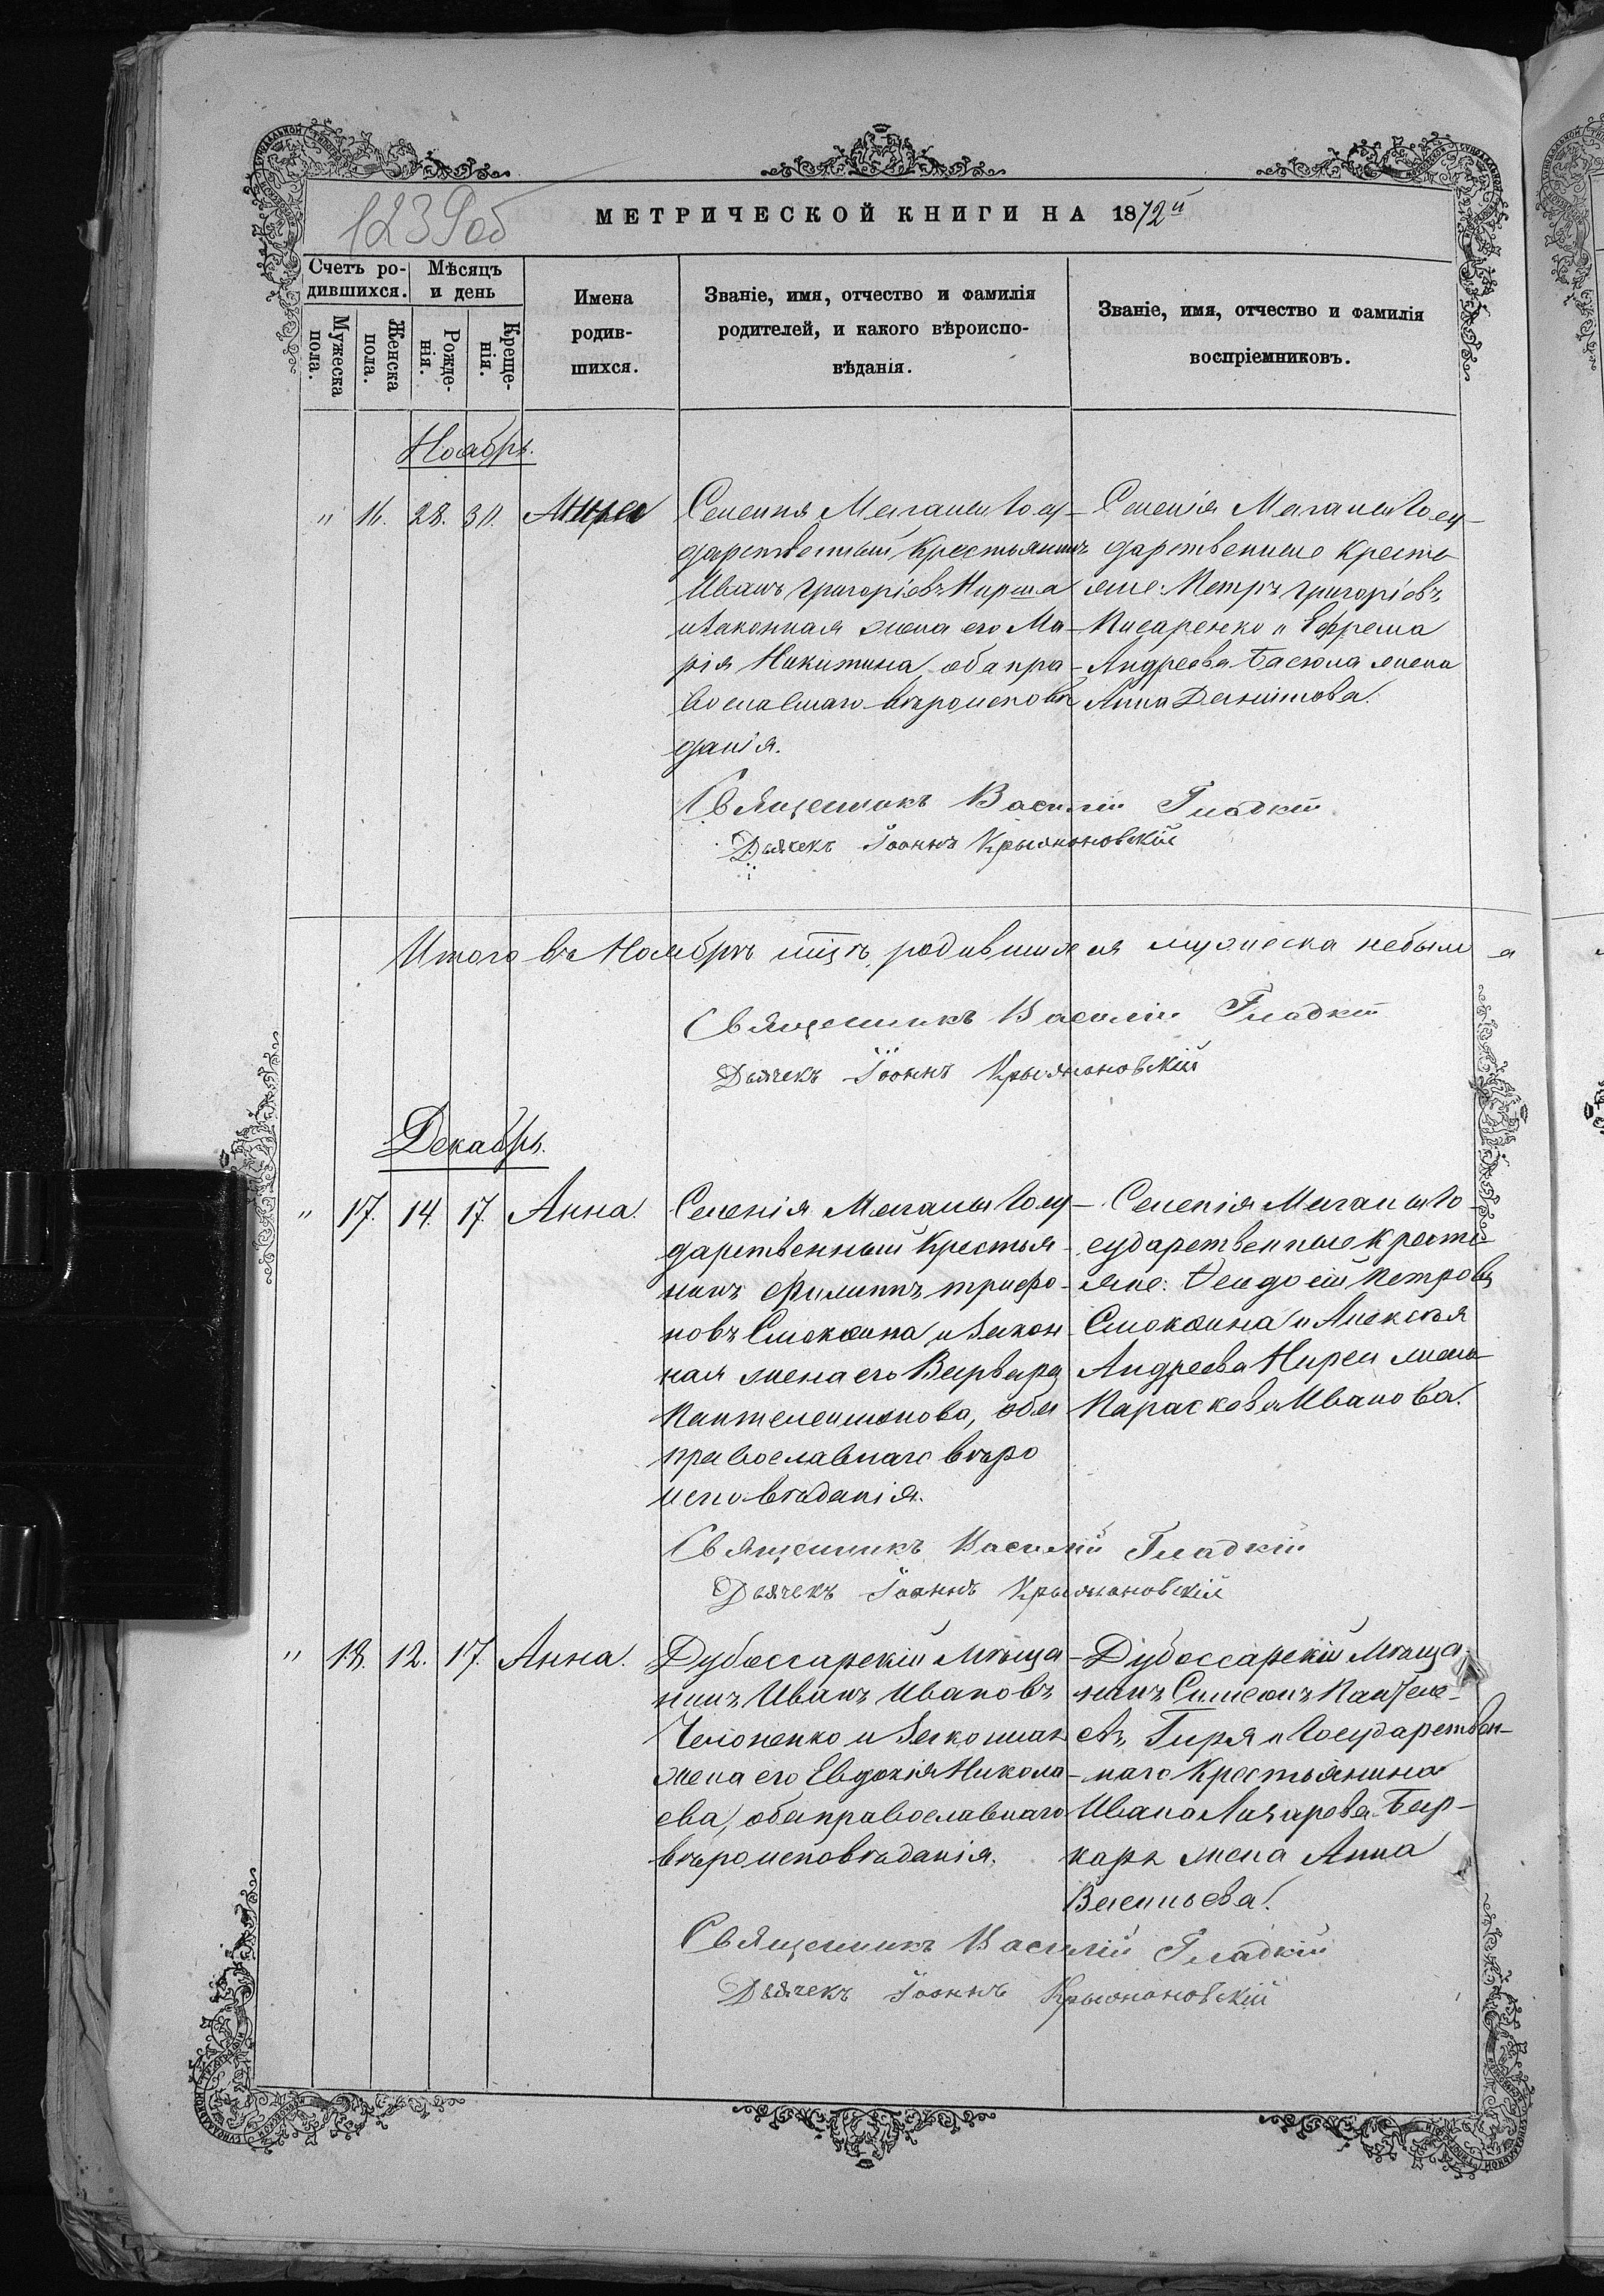 1239об
МЕТРИЧЕСКОЙ КНИГИ НА 1872й
Счетъ ро-
дившихся.
Мѣсяцъ
и день
Мужеска
пола.
Женска
пола.
Рожде-
нія.
Креще-
нія.
Имена
родив-
шихся.
Званіе, имя, отчество и фамилія
родителей, и какого вѣроиспо-
вѣданія.
Званіе, имя, отчество и фамилія
воспріемниковъ.
Ноябрь.
" 16. 28. 30.
Селенія Маганы Госу-
дарственный Крестьянинъ
Иванъ Григоріевъ
и законная жена его Ма-
рія Никитина оба пра-
вославнаго вѣроисповѣ
данія.
Селенія Маганы Госу-
дарственные кресть
яне: Петръ Григоріевъ
Писаренко и Ефрема
Андреева жена
Анна
Священникъ Василій Гладкій
Дьячекъ Іоаннъ Крыжановскій
Итого въ Ноябрѣ мцѣ родившихся мужеска небыло а
Священникъ Василій Гладкій
Дьячекъ Іоаннъ Крыжановскій
Декабрь.
" 17. 14. 17. Анна.
Селенія Маганы Госу-
дарственный Крестья-
нинъ Филиппъ Трифо-
новъ Смокина и закон
ная жена его Варвара
Пантелеимонова, оба
православнаго вѣро
исповѣданія.
Селенія Маганы Го-
сударственные кресть
яне: Феодосій Петровъ
Смокина и Алексѣя
Андреева жена
Параскева Иванова.
Священникъ Василій Гладкій
Дьячекъ Іоаннъ Крыжановскій
" 18. 12. 17. Анна.
Дубоссарскій Мѣща-
нинъ Иванъ Ивановъ
и законная
жена его Евдокія Никола-
ева, оба православнаго
вѣроисповѣданія.
Дубоссарскій Мѣща
нинъ Симеонъ Пантеле-
евъ Гиря и Государствен-
наго Крестьянина
Ивана Лазарева
жена Анна
Васильева.
Священникъ Василій Гладкій
Дьячекъ Іоаннъ Крыжановскій